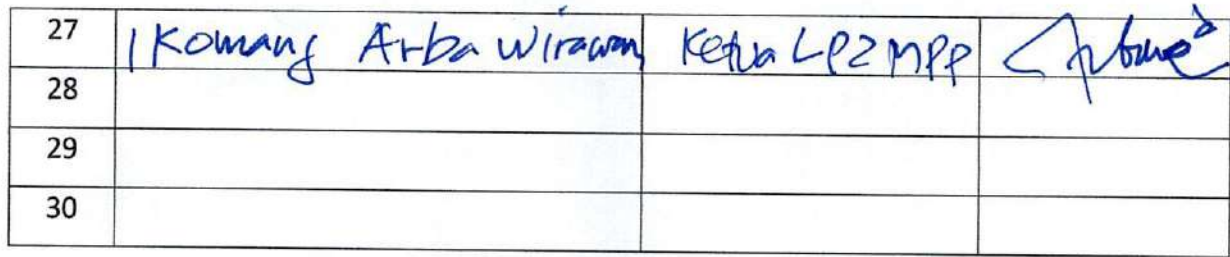 27 I Komang Arba Wirawan Ketua LP2MPP
28
29
30